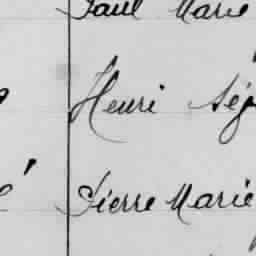 Paul Marie
Henri
Pierre Marie